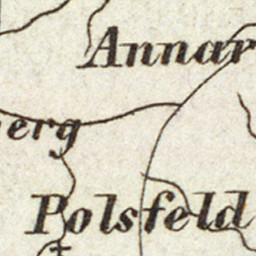 Annar
erg
Polsfeld